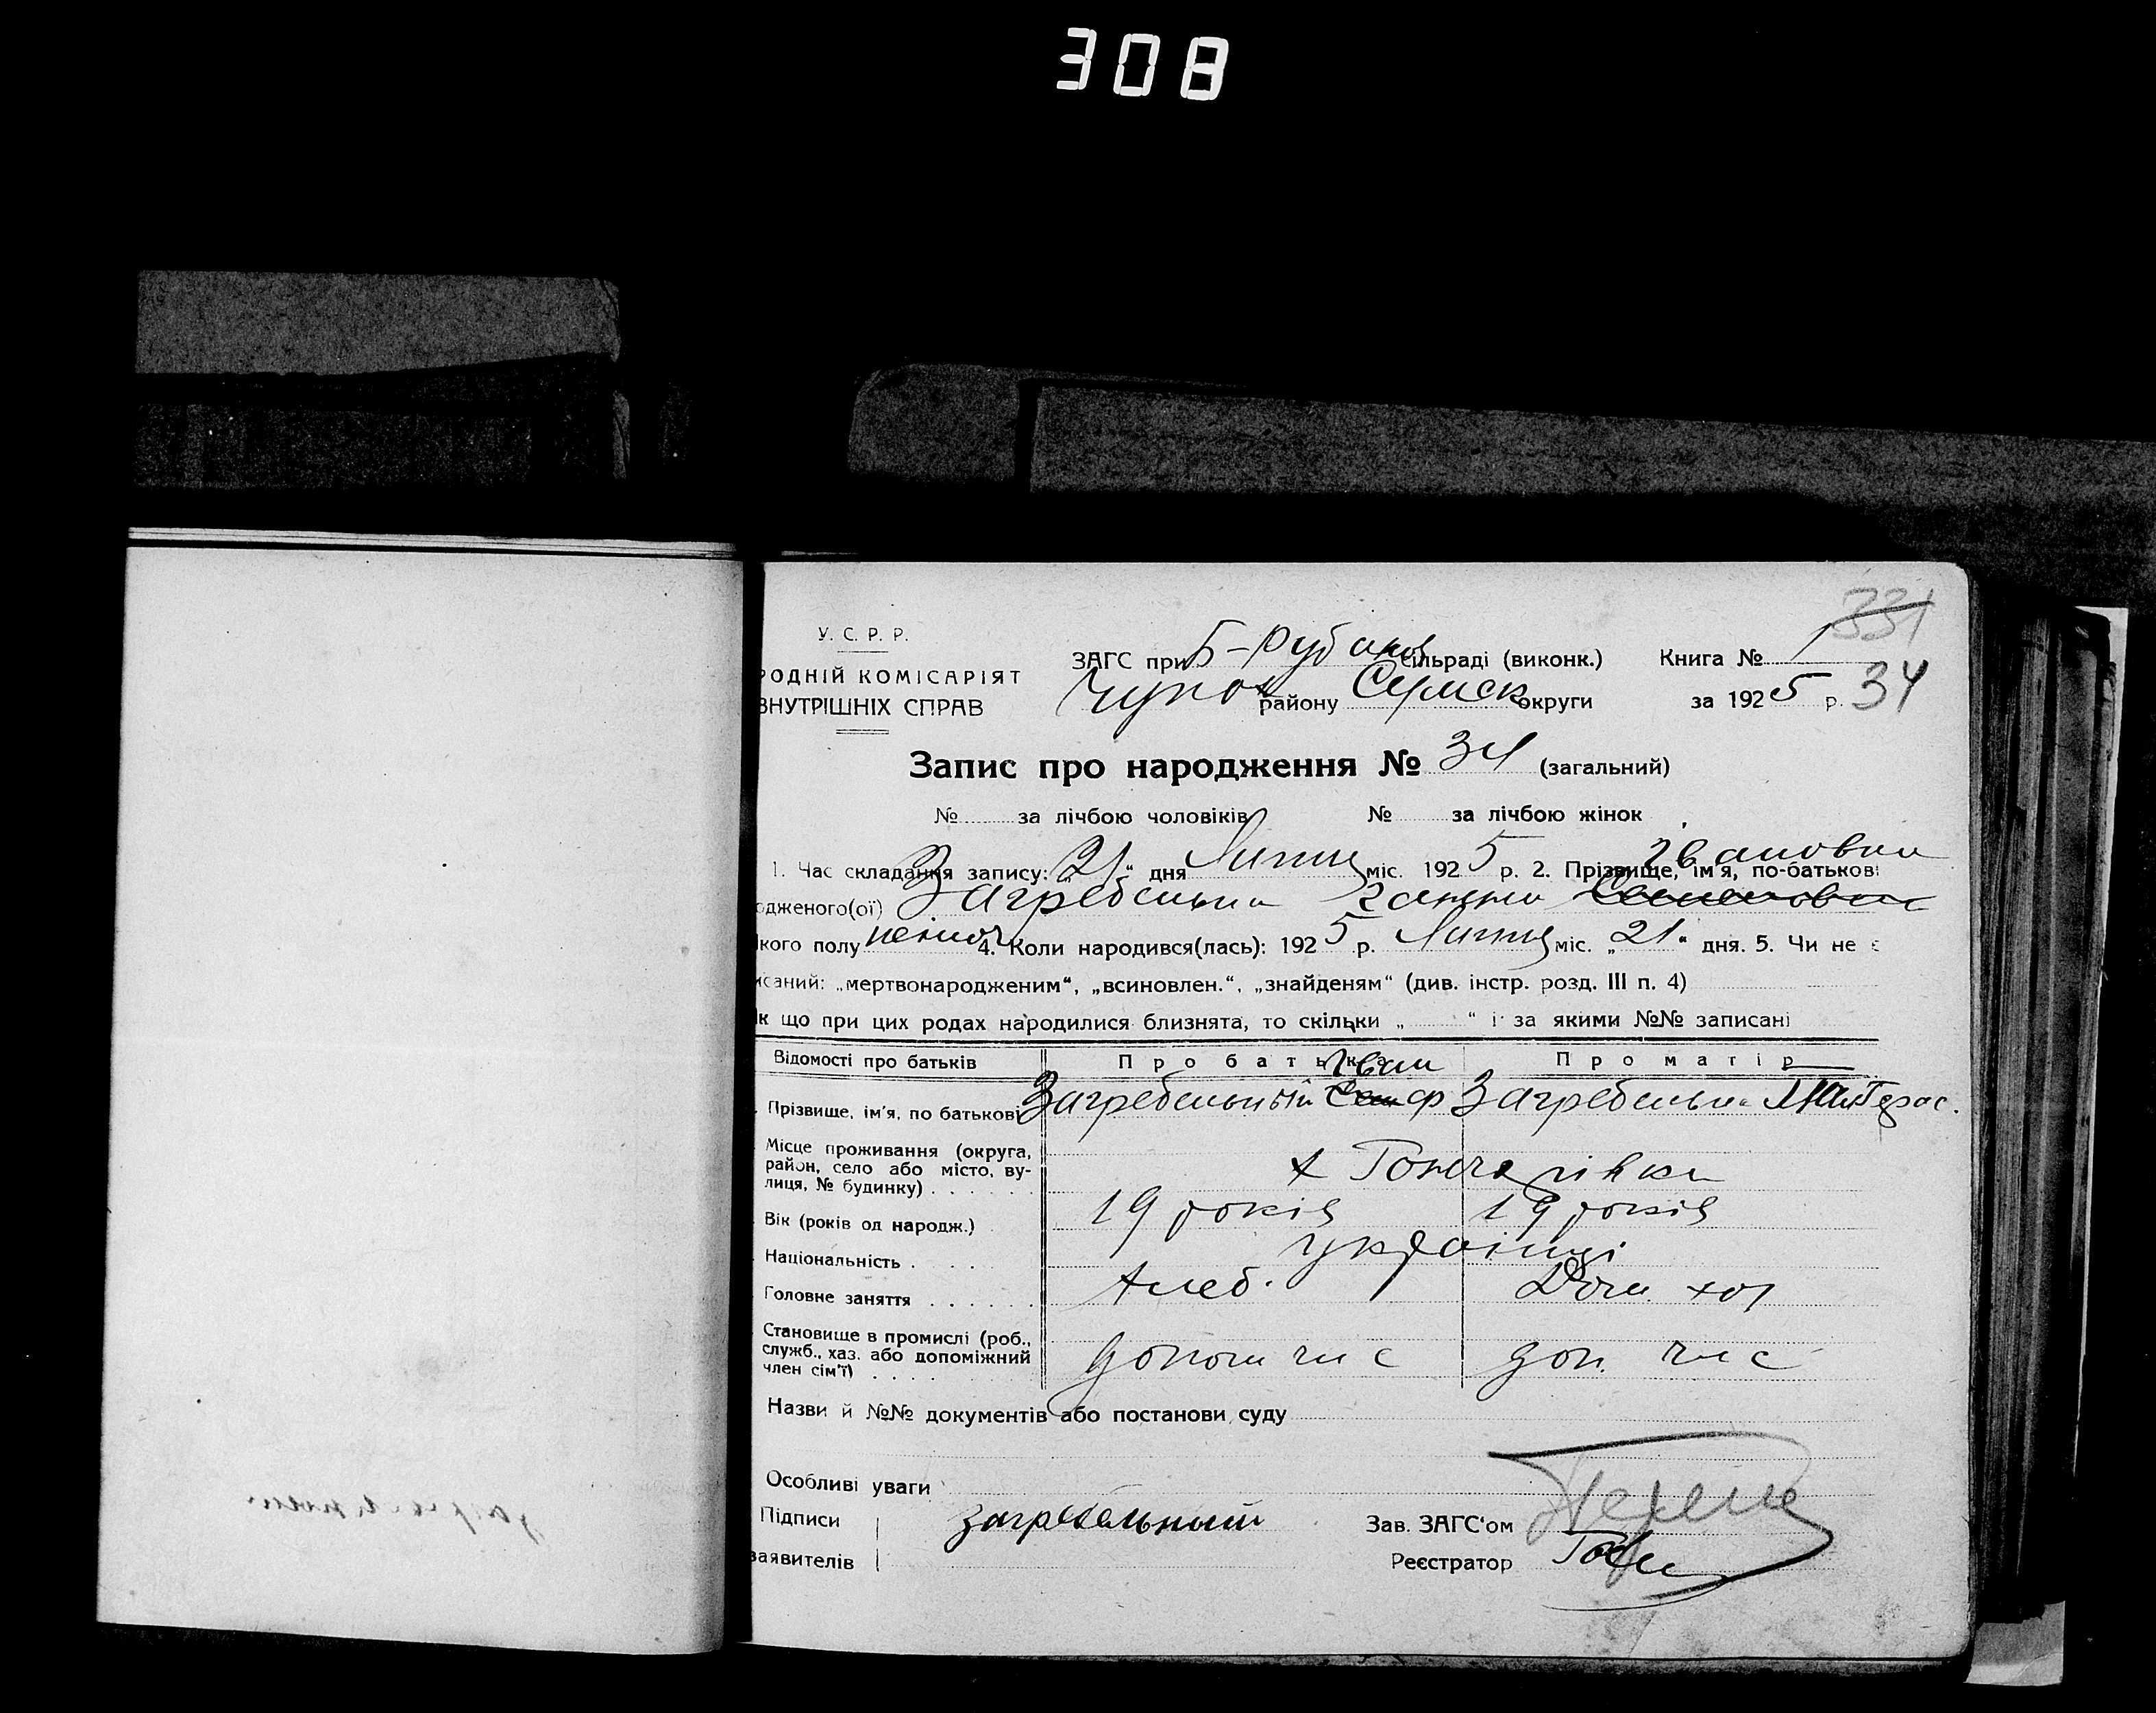 308
331
У. С. Р. Р.
ЗАГС при Б-Рубанов сільраді (виконк.) Книга № 1
РОДНІЙ КОМІСАРІЯТ
ВНУТРІШНІХ СПРАВ
району Сумск округи за 1925 р. 34
Запис про народження № 34 (загальний)
№ за лічбою чоловіків № за лічбою жінок
Ивановна
1. Час складання запису: „21“ дня Липня міс. 1925 р. 2. Прізвище, ім'я, по-батькові
одженого(ої) Загребельна Ганна Семеновна
кого полу жіноч 4. Коли народився(лась): 1925 р. Липня міс. „21“ дня. 5. Чи не є
исаний: „мертвонародженим“, „всиновлен.“, „знайденям“ (див. інстр. розд. III п. 4)
к що при цих родах народилися близнята, то скільки „ “ і за якими №№ записані
Відомості про батьків Про батька Про матір
Иван
Прізвище, ім'я, по батькові Загребельний Загребельна Герас.
Місце проживання (округа, район, село або місто, вулиця, № будинку) х Гончарівка
Вік (років од народж.) 19 років 19 років
Національність українці
Головне заняття хлеб. Дом. хоз
Становище в промислі (роб., служб., хаз. або допоміжний член сім'ї) допом чл с доп. чл с
Назви й №№ документів або постанови суду
Особливі уваги
Підписи загребельний Зав. ЗАГС'ом
заявителів Реєстратор